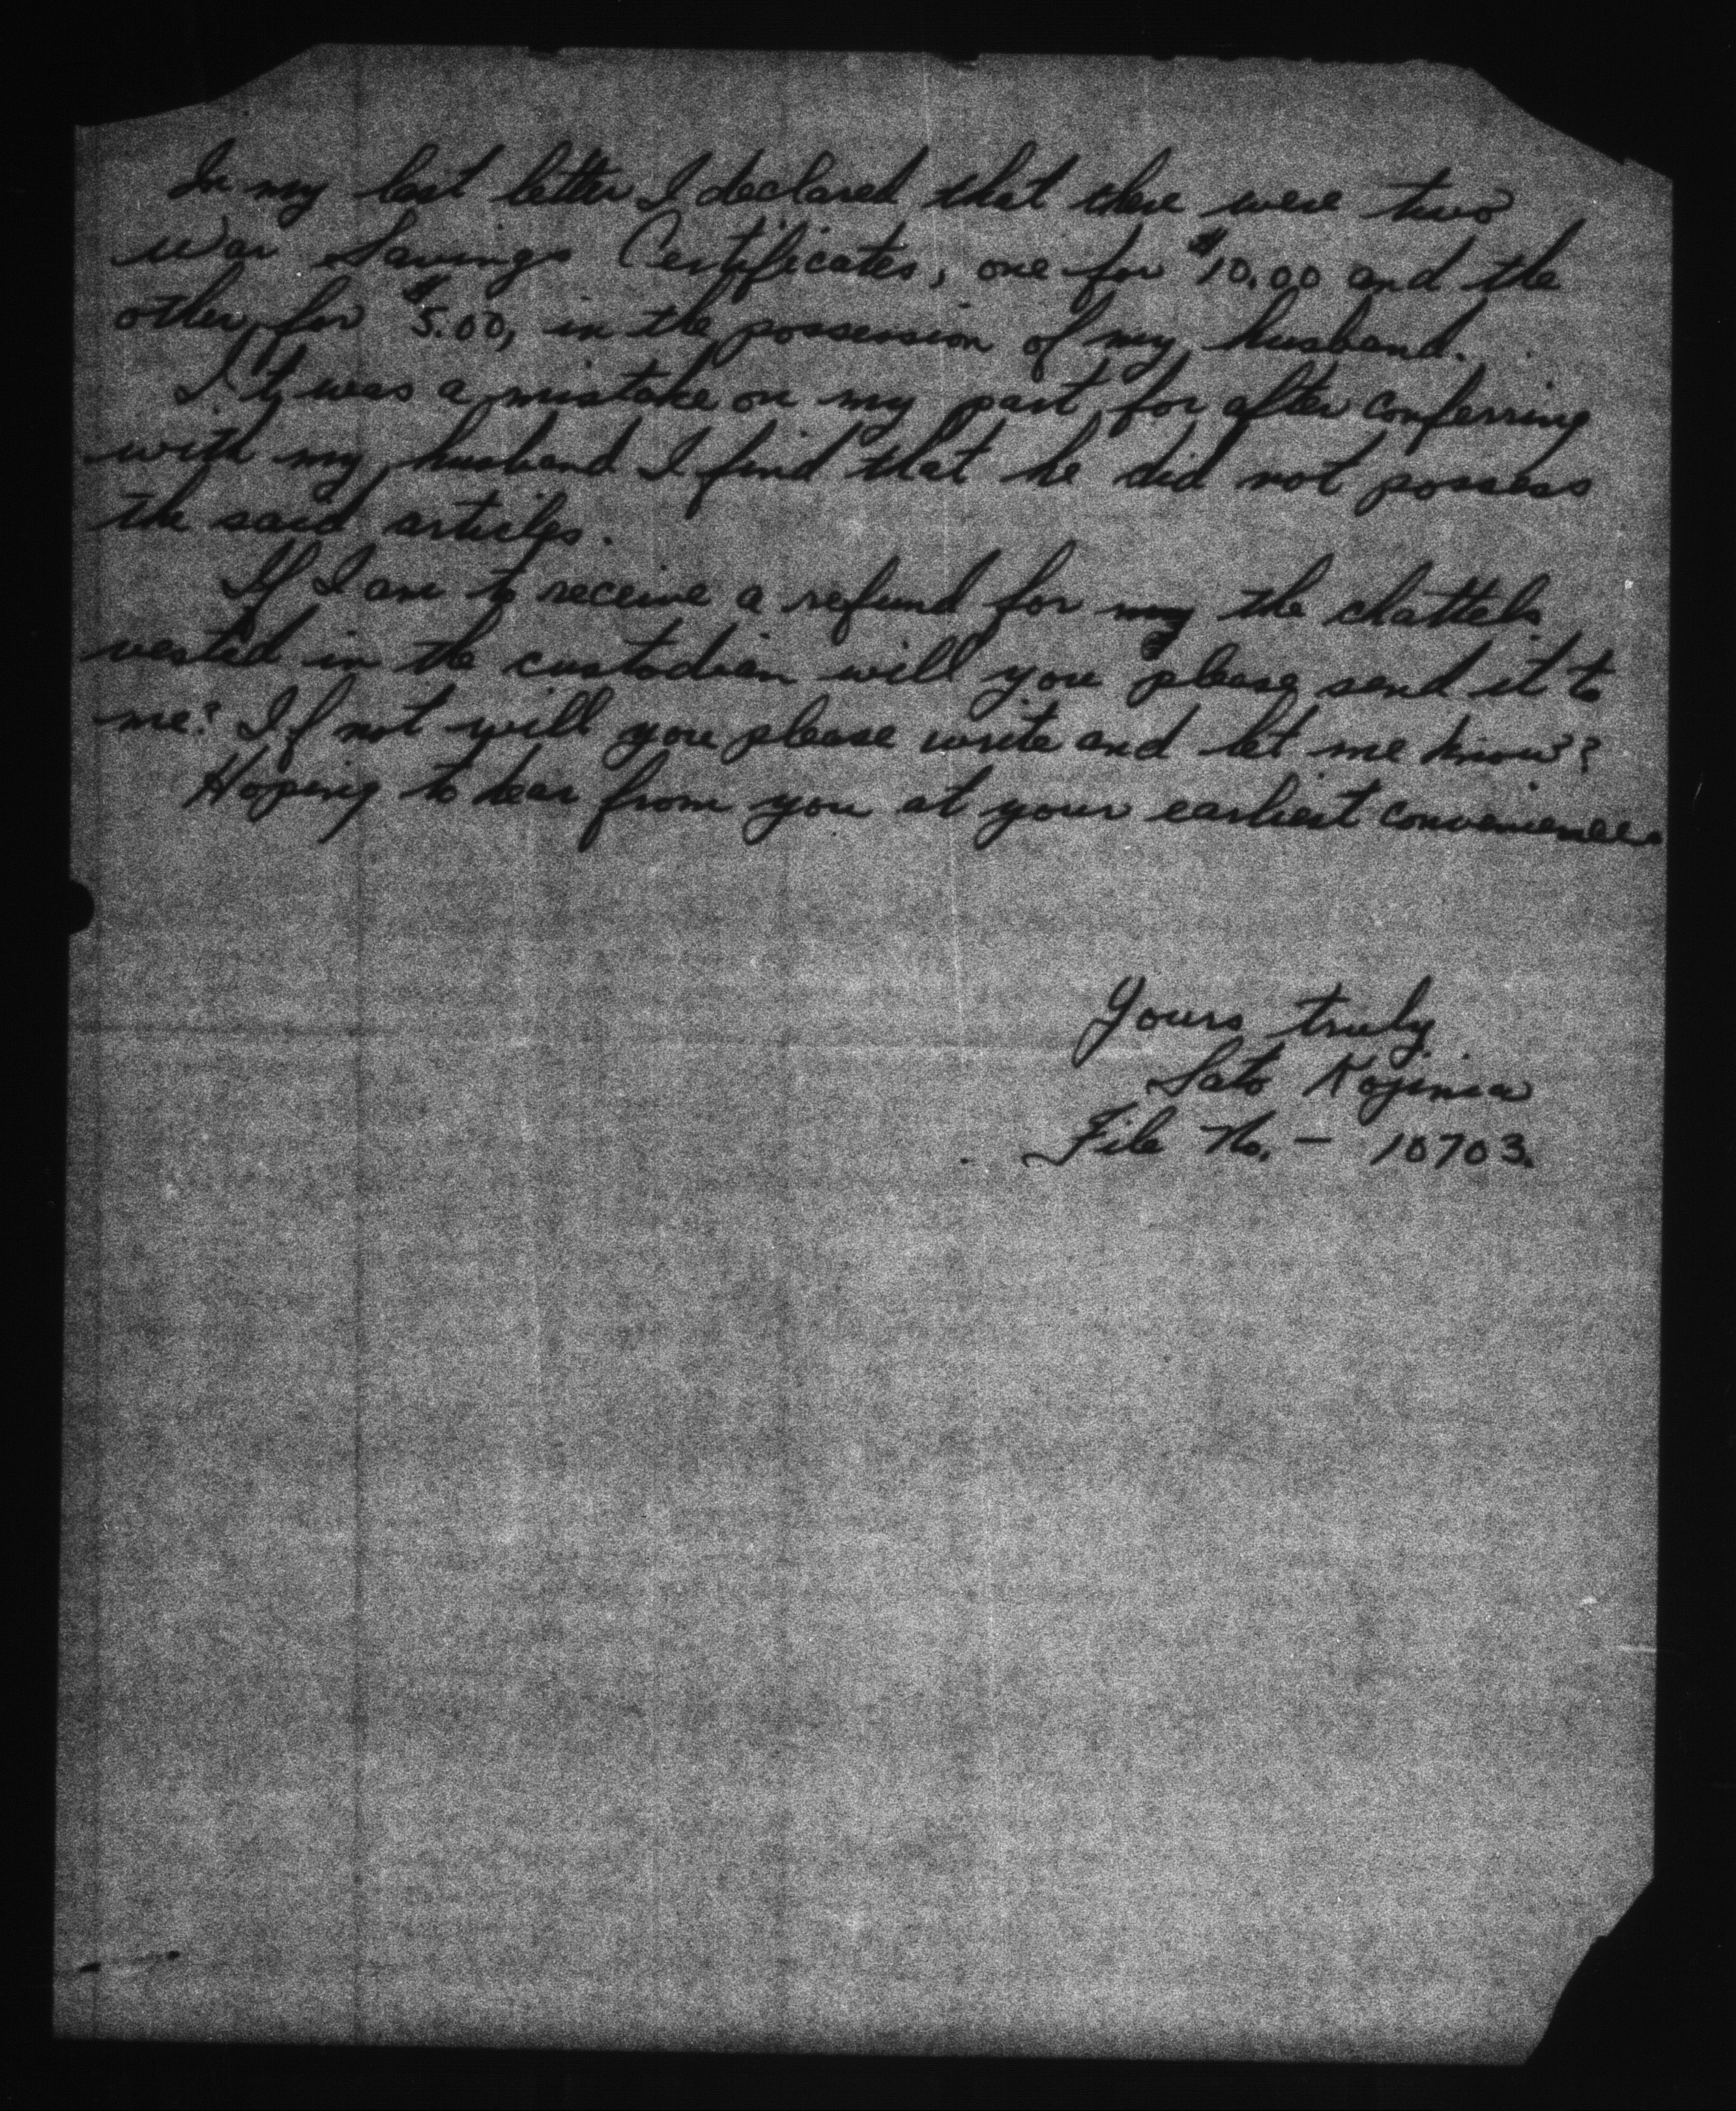 In my last letter I declared that there were two
War Savings Certificates, one for $10.00 and the
other for $5.00, in the possession of my husband.
It was a mistake on my part, for after conferring
with my husband I find that he did not possess
the said articles.
If I am to receive a refund for my the chattels
vested in the custodian will you please send it to
me? If not will you please write and let me know?
Hoping to hear from you at your earliest convenience.
Yours truly
Sato Kojima
File No. - 10703.